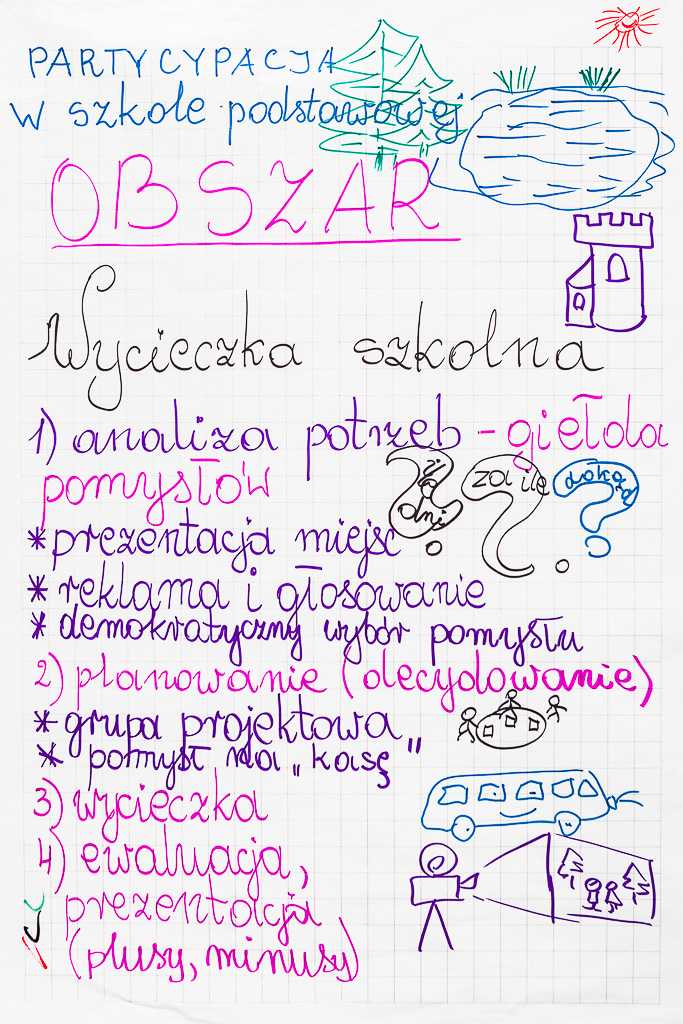 PARTYCYPACJA
w szkole podstawowej
OBSZAR
Wycieczka szkolna
1) analiza potrzeb - giełda
pomysłów
ile dni ? za ile ? dokąd ?
* prezentacja miejsc
* reklama i głosowanie
* demokratyczny wybór pomysłu
2) planowanie (decydowanie)
* grupa projektowa
* pomysł na „kasę"
3) wycieczka
4) ewaluacja,
prezentacja
(plusy, minusy)